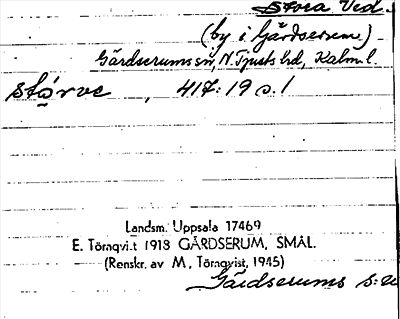 Stora Ved.
(by i Gärdserum)
Gärdserums sn, N. Tjusts hd, Kalm. l.
stǫrve , 417:19 s. 1
Landsm. Uppsala 17469
E. Törnqvist 1918 GÄRDSERUM, SMÅL.
(Renskr. av M. Törnqvist, 1945)
Gärdserums s:n